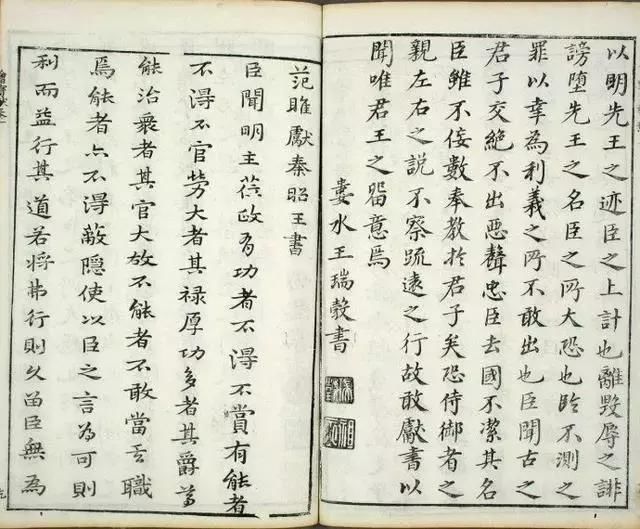 以明先王之迹臣之上計也離毀辱之誹
謗墮先王之名臣之所大恐也臨不測之
罪以幸為利義之所不敢出也臣聞古之
君子交絶不出惡聲忠臣去國不潔其名
臣雖不佞數奉教於君子矣恐侍御者之
親左右之說不察疏遠之行故敢獻書以
聞唯君王之留意焉
婁水王瑞穀書
范雎獻秦昭王書
臣聞明主莅政有功者不得不賞有能者
不得不官勞大者其禄厚功多者其爵尊
能治衆者其官大故不能者不敢當其職
焉能者亦不得蔽隱使以臣之言為可則
利而益行其道若將弗行則久留臣無為